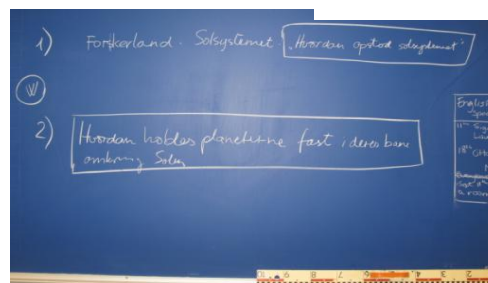 1) Forskerland. Solsystemet "Hvordan opstod solsystemet"
W
2) Hvordan holdes planeterne fast i deres bane
omkring Solen
English
11th
18th